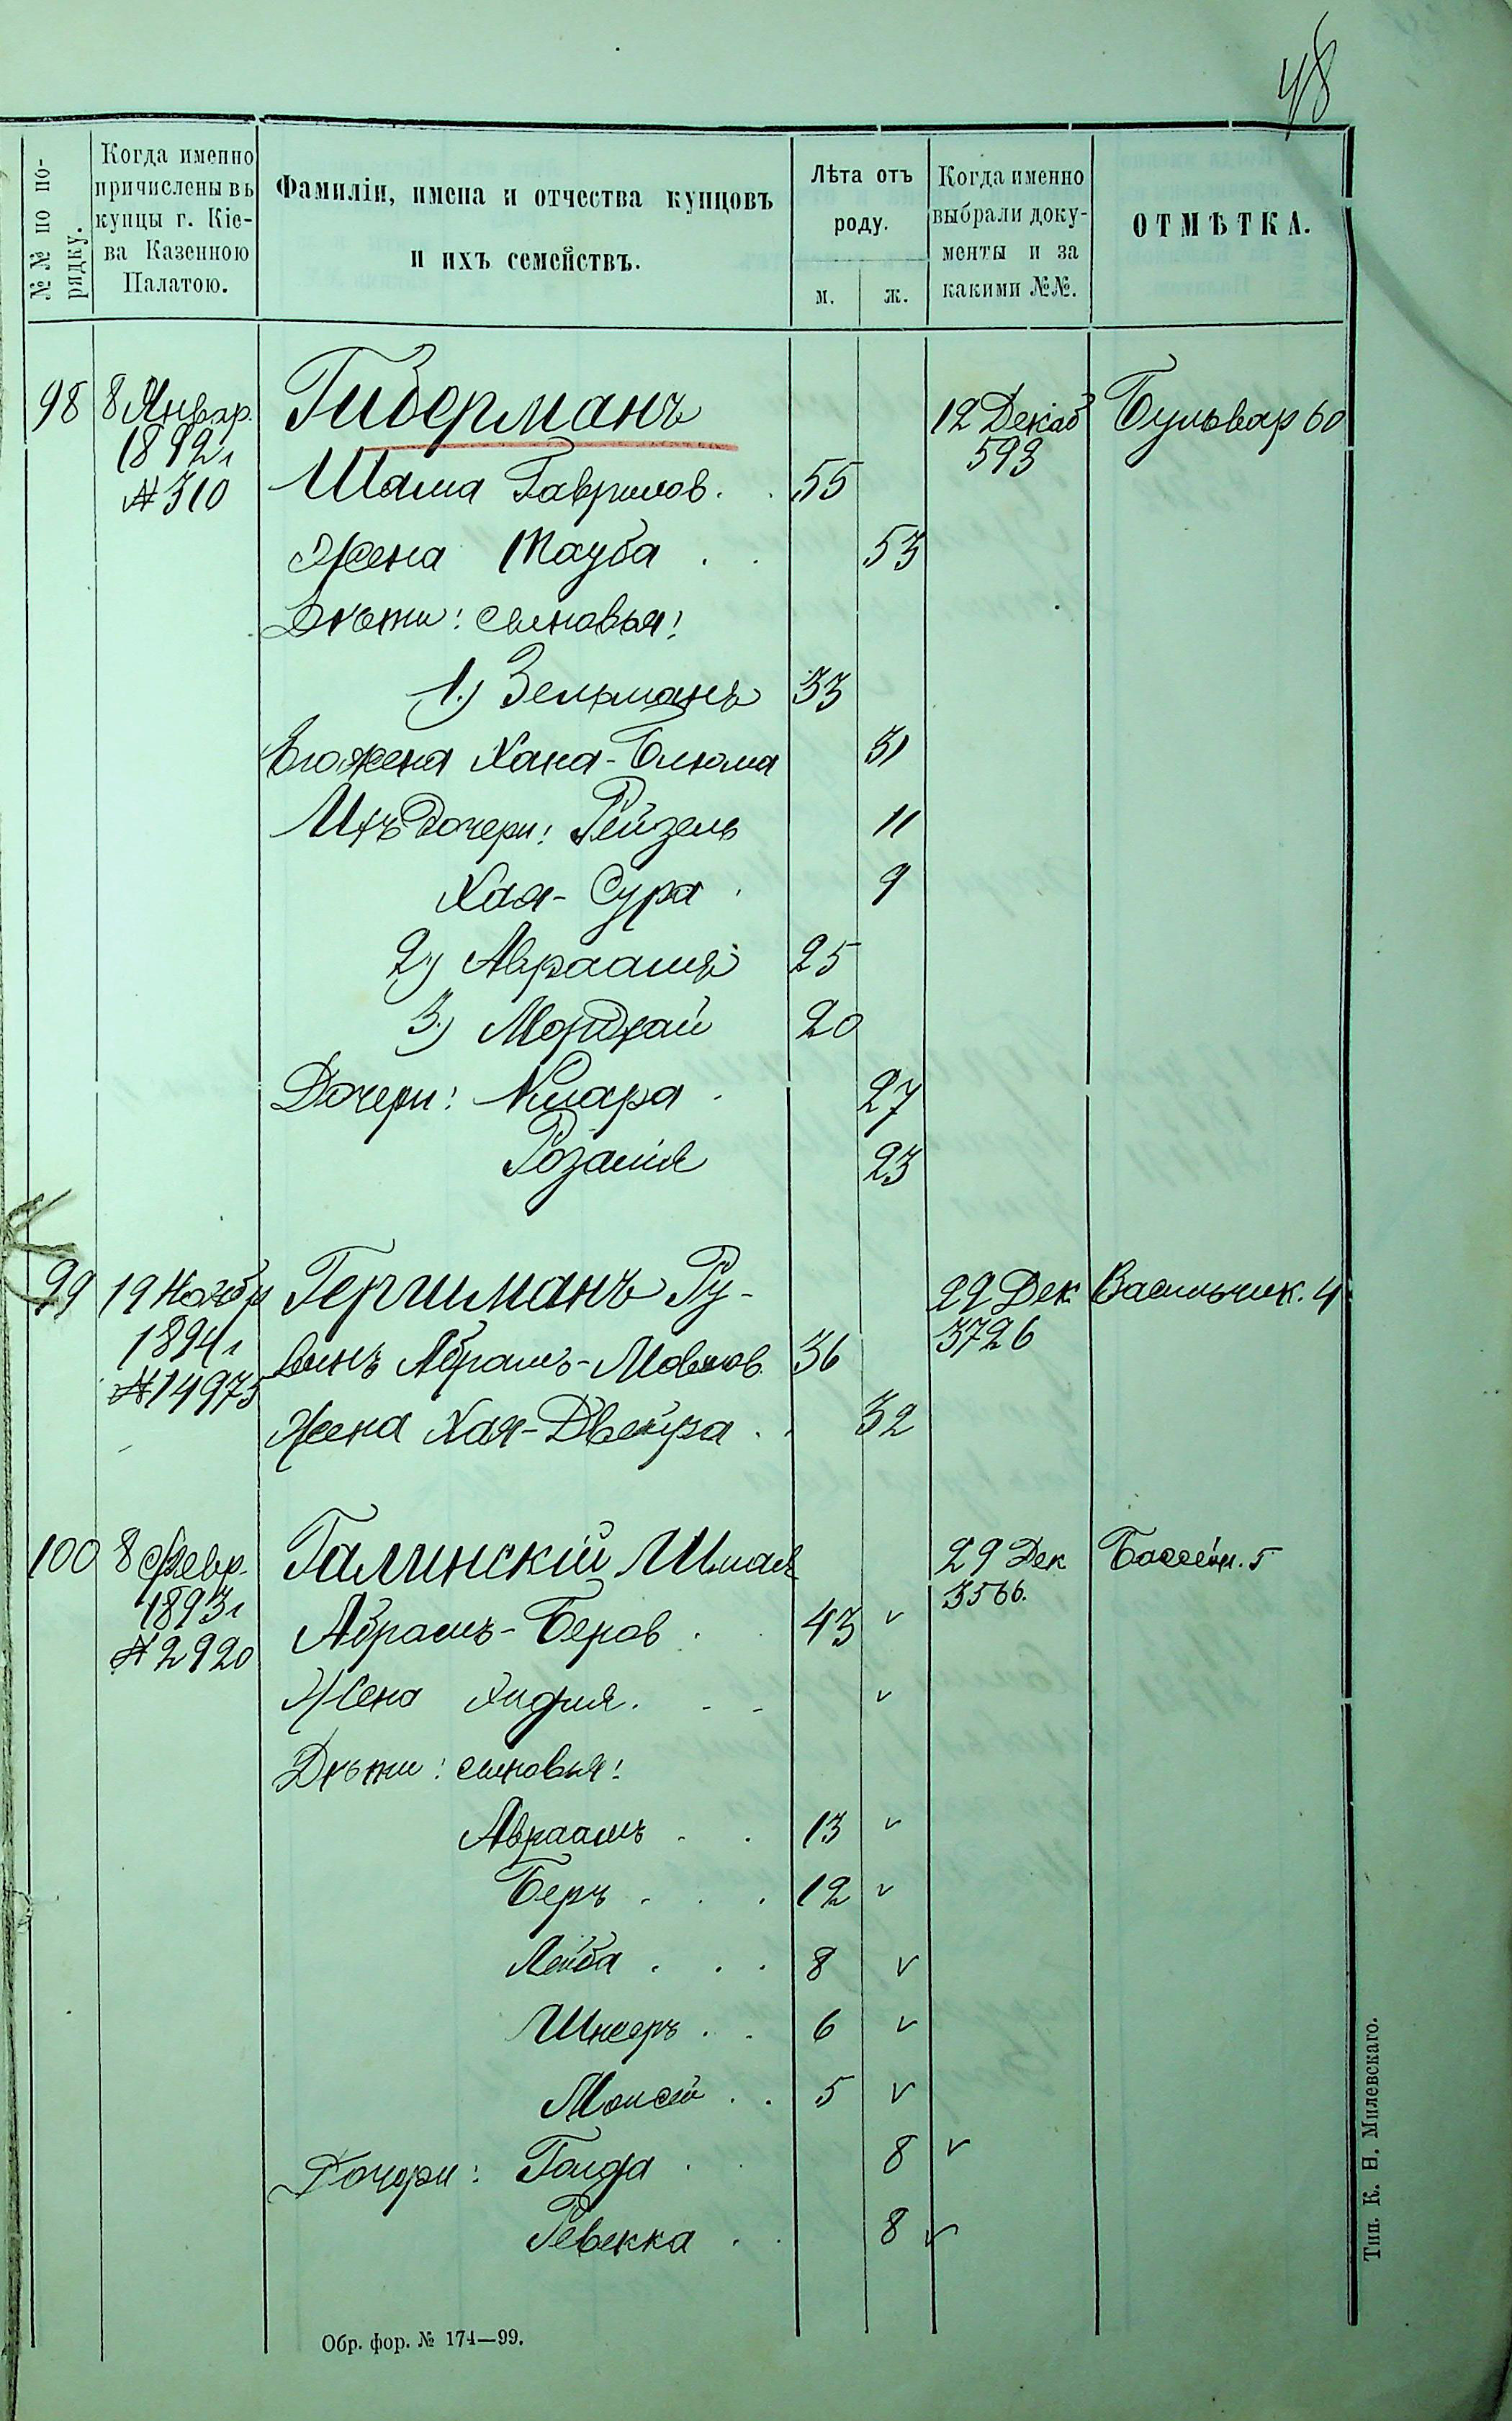 48
№№ по по-
рядку.
Когда именно
причислены въ
купцы г. Кіе-
ва Казенною
Палатою.
Фамиліи, имена и отчества купцовъ
и ихъ семействъ.
Лѣта отъ
роду.
м. ж.
Когда именно
выбрали доку-
менты и за
какими №№.
ОТМѢТКА.
98 8 Январ. Гиберманъ 12 Декаб Бульвар 60
1892 г 593
№ 310 Шама Гаврилов. 55
Жена Тауба 53
Дѣти: сыновья:
1.) Зельманъ 33
Его жена Хана-Блюма 31
Ихъ дочери: Рейзель 11
Хая-Сура 9
2.) Авраамъ 25
3.) Мордхай 20
Дочери: Клара 27
Розалія 23
99 19 Ноябр Гершманъ Ру- 29 Дек Васильчик. 4
1894 г 3726
винъ Абрамъ-Мовшов. 36
№ 14975
Жена Хая-Двейра 32
100 8 Февр. Галинскій Шмая 29 Дек Бассейн. 5
1893 г 3566.
Абрамъ-Беров 43 v
№ 2920
Жена v
Дѣти: сыновья:
Авраамъ 13 v
Беръ 12 v
Лейба 8 v
Шнееръ 6 v
Моисей 5 v
Дочери: Голда 8 v
Ревекка 8 v
Обр. фор. № 174—99.
Тип. К. Н. Милевскаго.